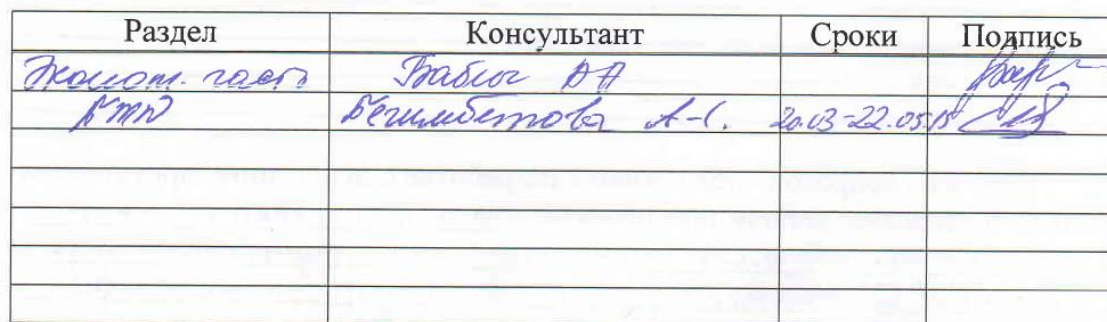 Раздел Консультант Сроки Подпись
Эконом. часть Бабич АА
БТД Бегимбетова А.С. 20.03-22.05.15